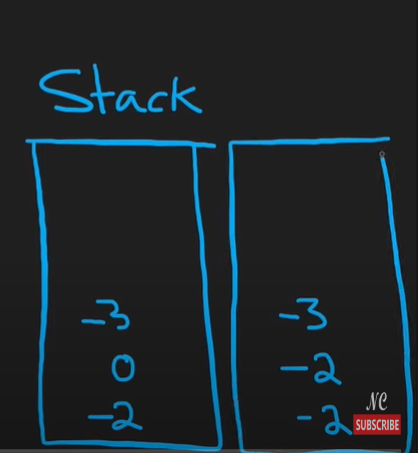 Stack
-3 -3
0 -2
-2 -2
NC
SUBSCRIBE